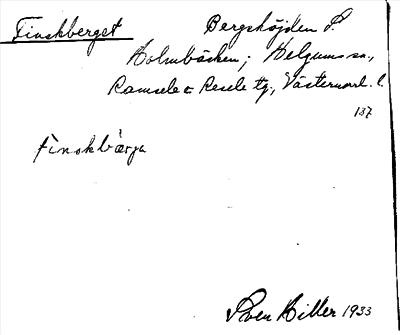 Finskberget Bergshöjden S.
Holmbäcken; Helgums sn,
Ramsele o Resele tg, Västernorrl. l.
137
finskbærja
Sven Hiller 1933